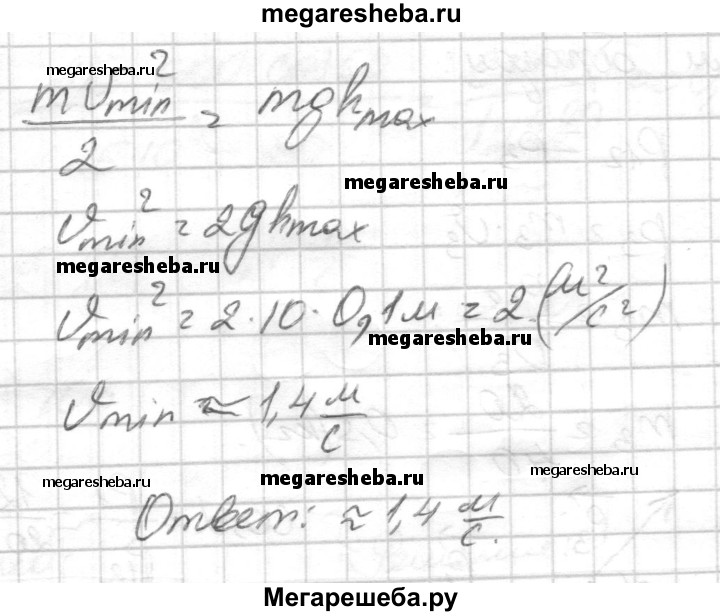 megaresheba.ru
megaresheba.ru
mυmin²/2 = mghmax
megaresheba.ru
υmin² = 2ghmax
megaresheba.ru
υmin² = 2·10·0,1м = 2 (м²/с²)
megaresheba.ru
υmin ≈ 1,4 м/с
megaresheba.ru megaresheba.ru megaresheba.ru
Ответ: ≈ 1,4 м/с.
Мегарешеба.ру